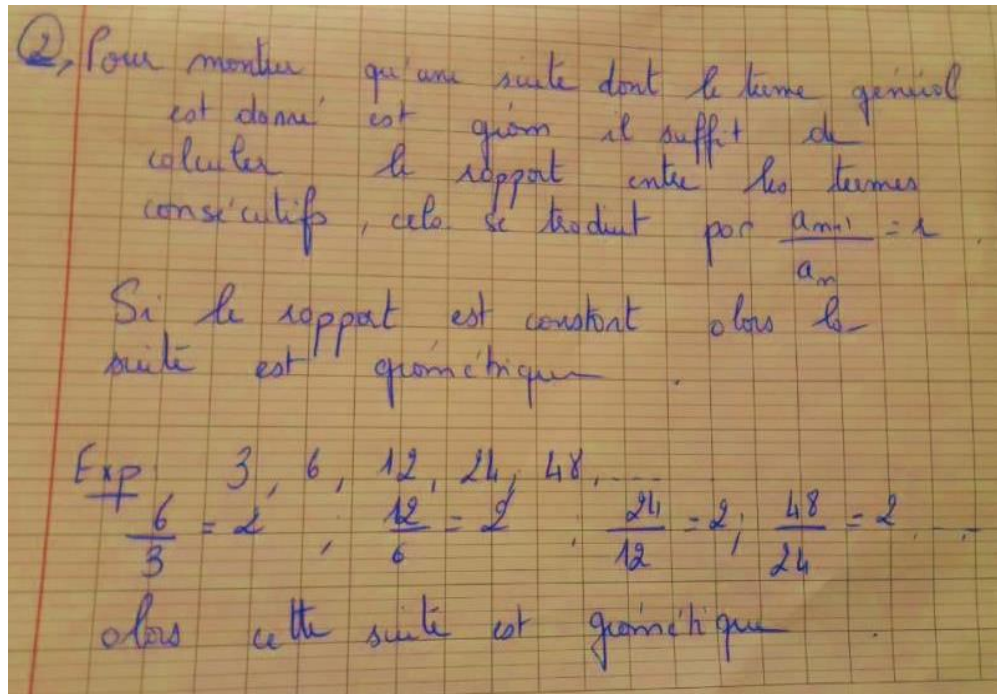 2, Pour montrer qu'une suite dont le terme général
est donné est géom il suffit de
calculer le rapport entre les termes
consécutifs, cela se traduit par a_{n+1}/a_n = r.
Si le rapport est constant alors la
suite est géométrique.
Exp: 3, 6, 12, 24, 48, ....
6/3 = 2 ; 12/6 = 2 ; 24/12 = 2; 48/24 = 2 ....
alors cette suite est géométrique.